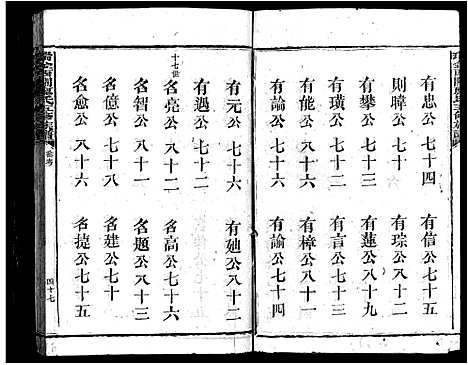 有忠公七十四
有信公七十五
則暲公八十一
有琮公八十二
有攀公七十三
有蓮公八十一
有璜公八十二
有言公七十三
有能公八十六
有樟公八十一
有論公七十六
有諭公七十四
有元公七十六
有馳公八十二
有遇公七十二
十七世
名亮公八十二
名高公七十六
名智公八十一
名題公八十三
名億公七十八
名建公七十三
名愈公八十六
名捷公七十五
四十七